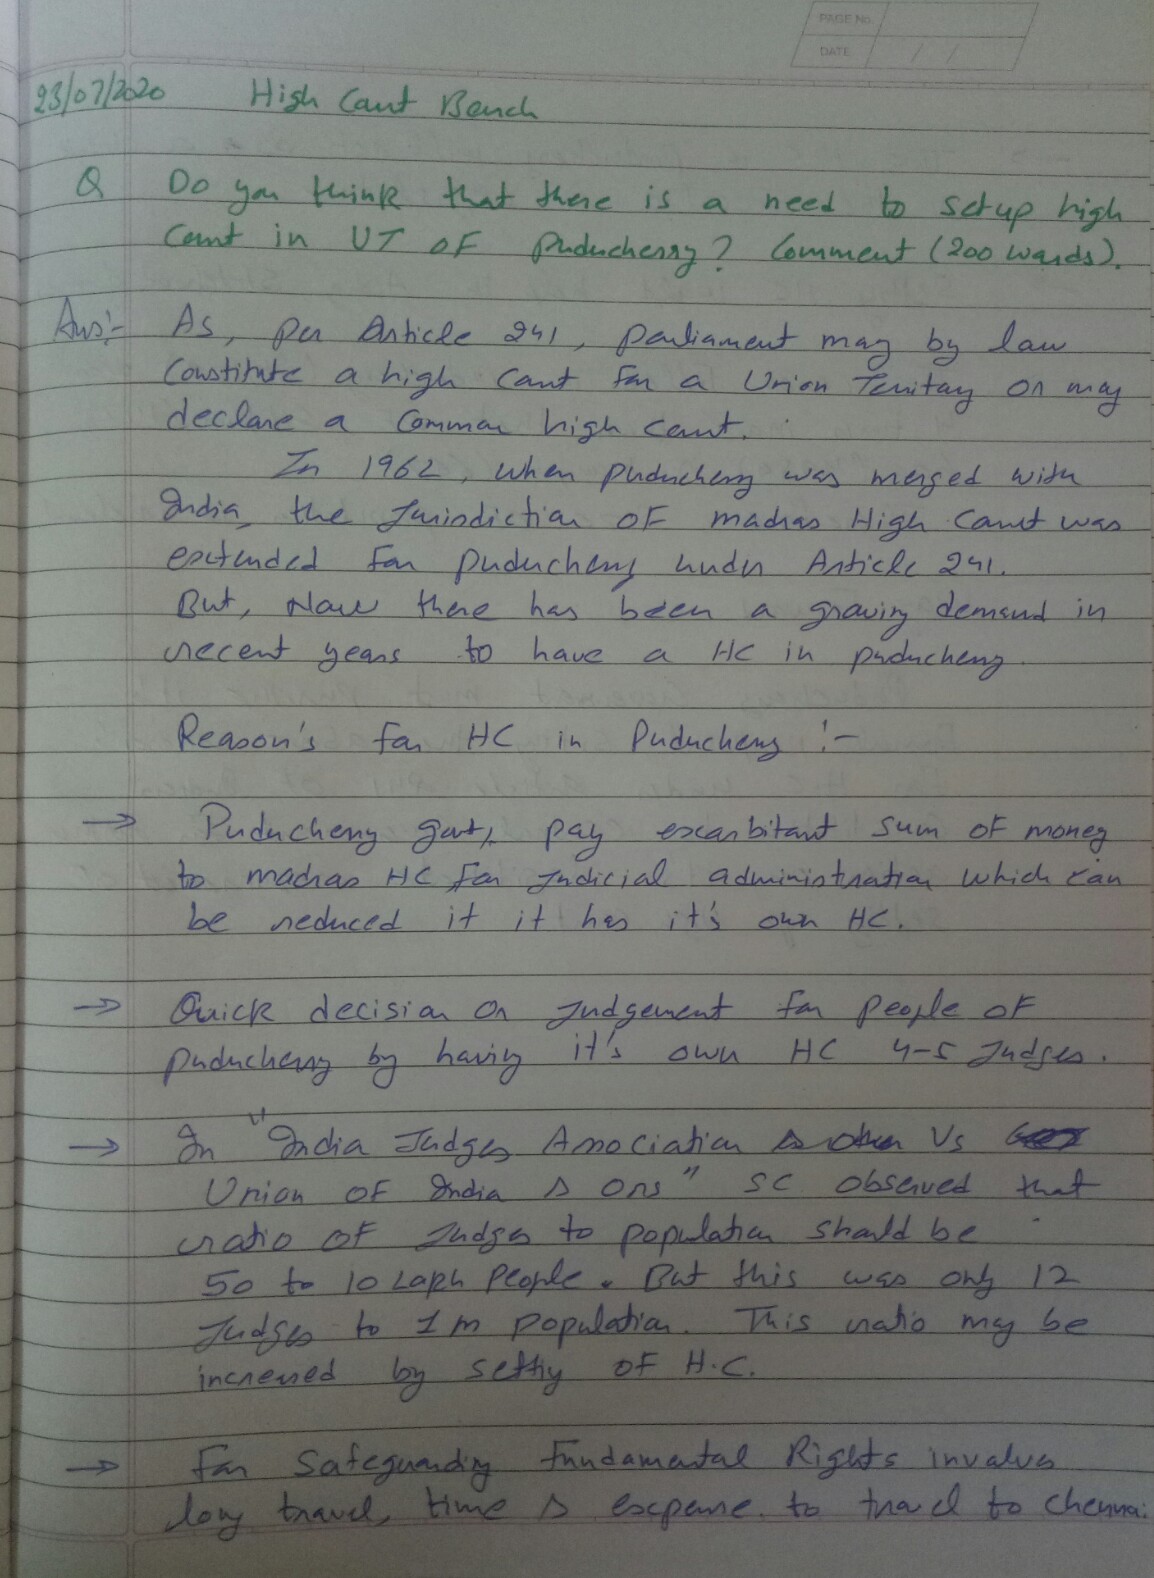 PAGE No.
DATE / /
23/07/2020 High Court Bench
Q Do you think that there is a need to setup high
Court in UT OF Puducherry? Comment (200 words).
Ans:- As, per Article 241, parliament may by law
Constitute a high Court for a Union Territory or may
declare a Common high Court.
In 1962, when puducherry was merged with
India, the Jurisdiction OF madras High Court was
extended for puducherry under Article 241.
But, Now there has been a growing demand in
recent years to have a HC in puducherry.
Reason's for HC in Puducherry :-
→ Puducherry govt, pay excorbitant sum of money
to madras HC for Judicial administration which can
be reduced it it has it's own HC.
→ Quick decision or Judgement for People OF
puducherry by having it's own HC 4-5 Judges.
→ In "India Judges Association Vs
Union OF India & Ors" SC observed that
ratio OF Judges to population should be
50 to 10 Laph People. But this was only 12
Judges to 1m population. This ratio may be
increased by setting OF H.C.
→ For Safeguarding Fundamental Rights involves
long travel, time & expense. to travel to Chennai